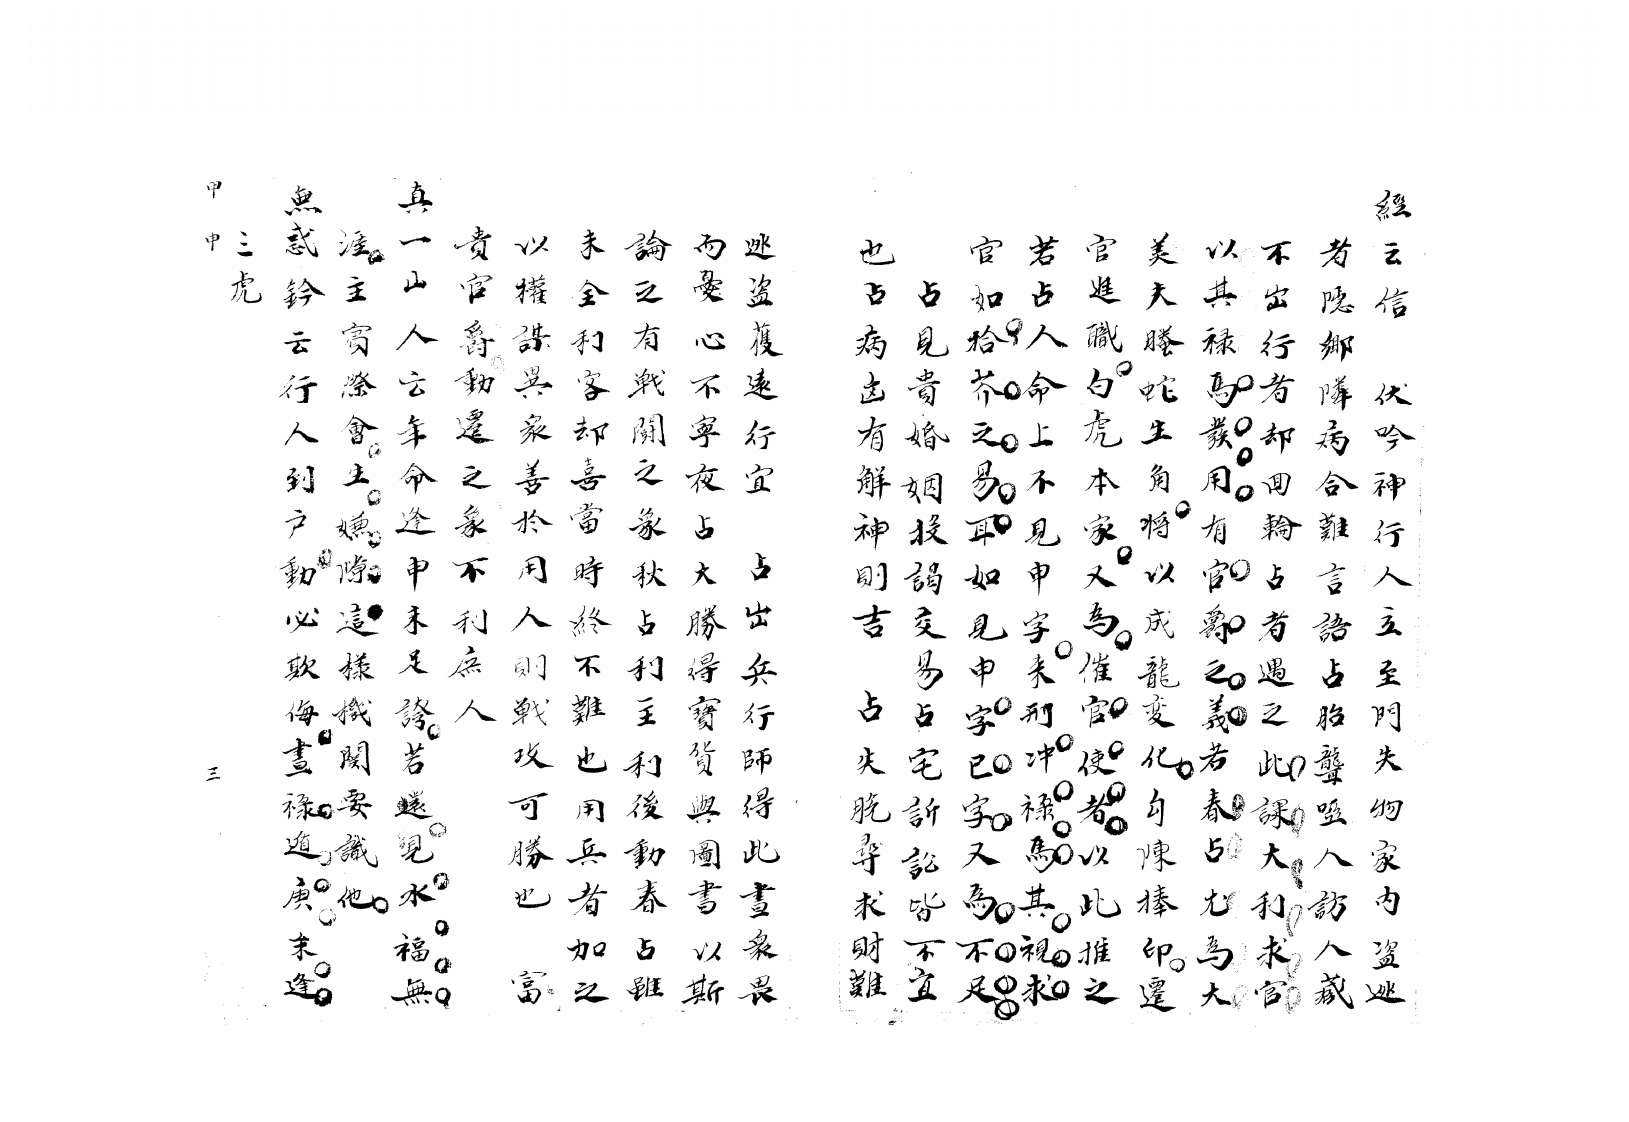 經云信 伏吟神行人立至門失物家内盗逃
者隠郷隣病合難言語占胎聾啞人訪人藏
不出行者却回輪占者遇之此課大利求官
以其禄馬發用有官爵之義若春占尤為大
美夫螣蛇生角将以成龍変化勾陳捧印遷
官進職白虎本家又為催官使者以此推之
若占人命上不見申字来刑冲禄馬其視求
官如拾芥之易耳如見申字已字又為不足
占見貴婚姻投謁交易占宅訢訟皆不宜
也占病凶有解神則吉 占失脱尋求財難
逃盗獲遠行宜 占出兵行師得此晝衆畏
而憂心不寧夜占大勝得寶貨與圖書以斯
論之有戦鬪之象秋占利主利後動春占雖
未全利客却喜當時終不難也用兵者加之
以權謀異衆善於用人則戦攻可勝也 富
貴官爵動遷之象不利庶人
真一山人云年命逢申未足誇若還見水福無
涯主賓際會生嫌隙這様機関要識他
無惑鈐云行人到户動必欺侮晝禄遁庚末逢
三虎
甲申 三